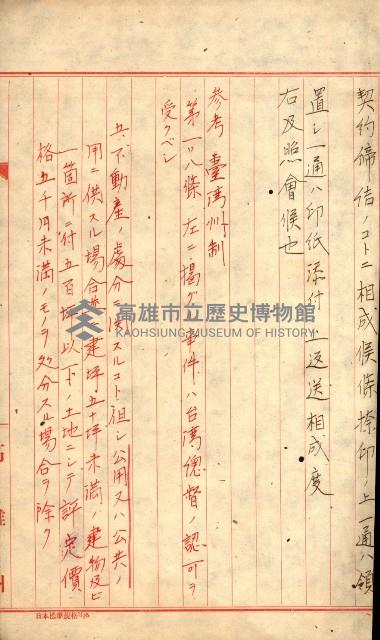 契約締結ノコトニ相成候條捺印ノ上一通ハ領
置シ一通ハ印紙添付ノ上返送相成度
右及照會候也
参考 臺湾州制
第一〇八條 左ニ掲グル事件ハ台湾総督ノ認可ヲ
受クベシ
五、不動産ノ處分ニ関スルコト但シ公用又ハ公共ノ
用ニ供スル場合並建坪五十坪未満ノ建物及ビ
一箇所ニ付五百坪以下ノ土地ニシテ評定價
格五千円未満ノモノヲ処分スル場合ヲ除ク
高雄市立歷史博物館
KAOHSIUNG MUSEUM OF HISTORY
高雄州
日本標準規格